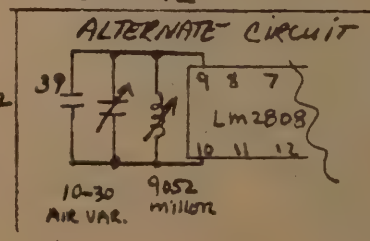 ALTERNATE CIRCUIT
39
9 8 7
Lm2808
10 11 12
10-30
AIR VAR.
9052
miller